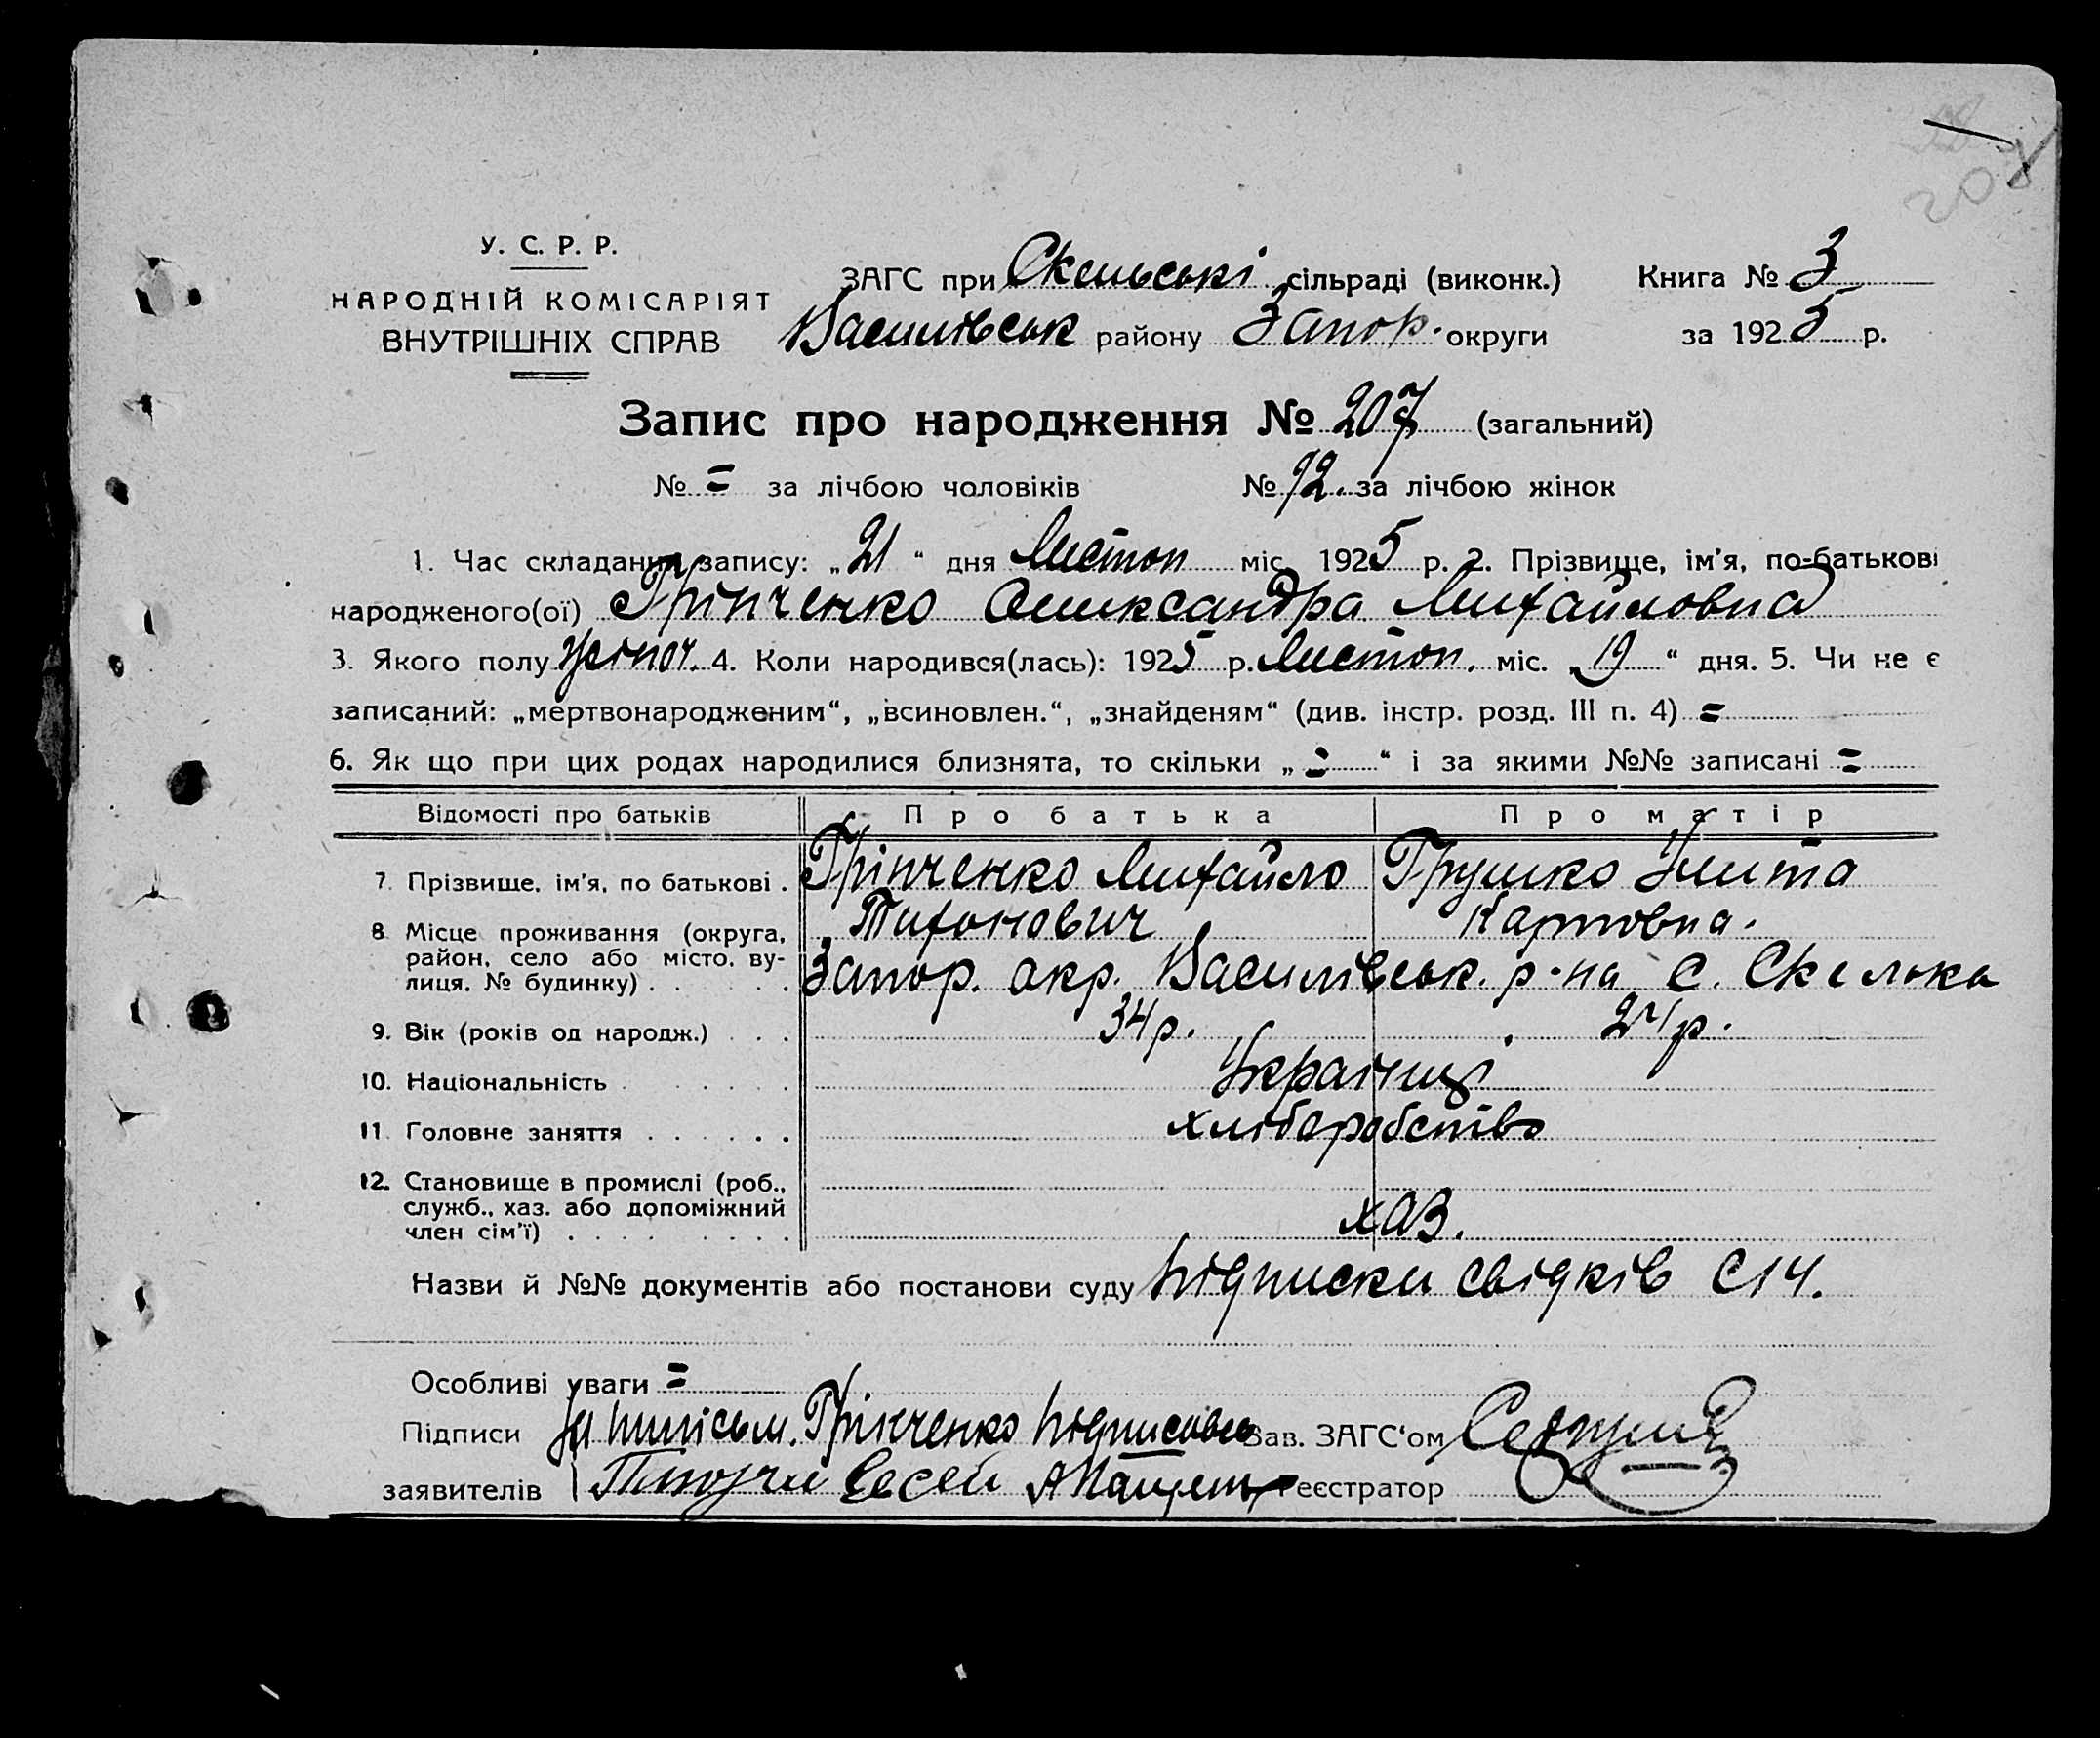 У. С. Р. Р.
НАРОДНІЙ КОМІСАРІЯТ
ВНУТРІШНІХ СПРАВ
ЗАГС при Скельські сільраді (виконк.) Книга № 3
Василівськ району Запор. округи за 1925 р.
Запис про народження № 207 (загальний)
№ = за лічбою чоловіків № 92. за лічбою жінок
1. Час складання запису: „21“ дня Листоп міс. 1925 р. 2. Прізвище, ім'я, по-батькові
народженого(ої) Грінченко Олександра Михайловна
3. Якого полу жіноч. 4. Коли народився(лась): 1925 р. Листоп. міс. „19“ дня. 5. Чи не є
записаний: „мертвонародженим“, „всиновлен.“, „знайденям“ (див. інстр. розд. III п. 4) =
6. Як що при цих родах народилися близнята, то скільки „=“ і за якими №№ записані =
Відомості про батьків Про батька Про матір
7. Прізвище, ім'я, по батькові . Грінченко Михайло Грушко
Тихонович Карповна.
8 Місце проживання (округа,
район, село або місто, ву-
лиця, № будинку) . . . . Запор. окр. Василівськ. р-на с. Скелька
9. Вік (років од народж.) . . . 34 р. р.
10. Національність . . . . . . Українці
11. Головне заняття . . . . . . хліборобство
12. Становище в промислі (роб.,
служб., хаз. або допоміжний
член сім'ї) . . . . . . . . . хаз.
Назви й №№ документів або постанови суду Підписки свідків
Особливі уваги =
Підписи Грінченко Зав. ЗАГС'ом
заявителів Реєстратор